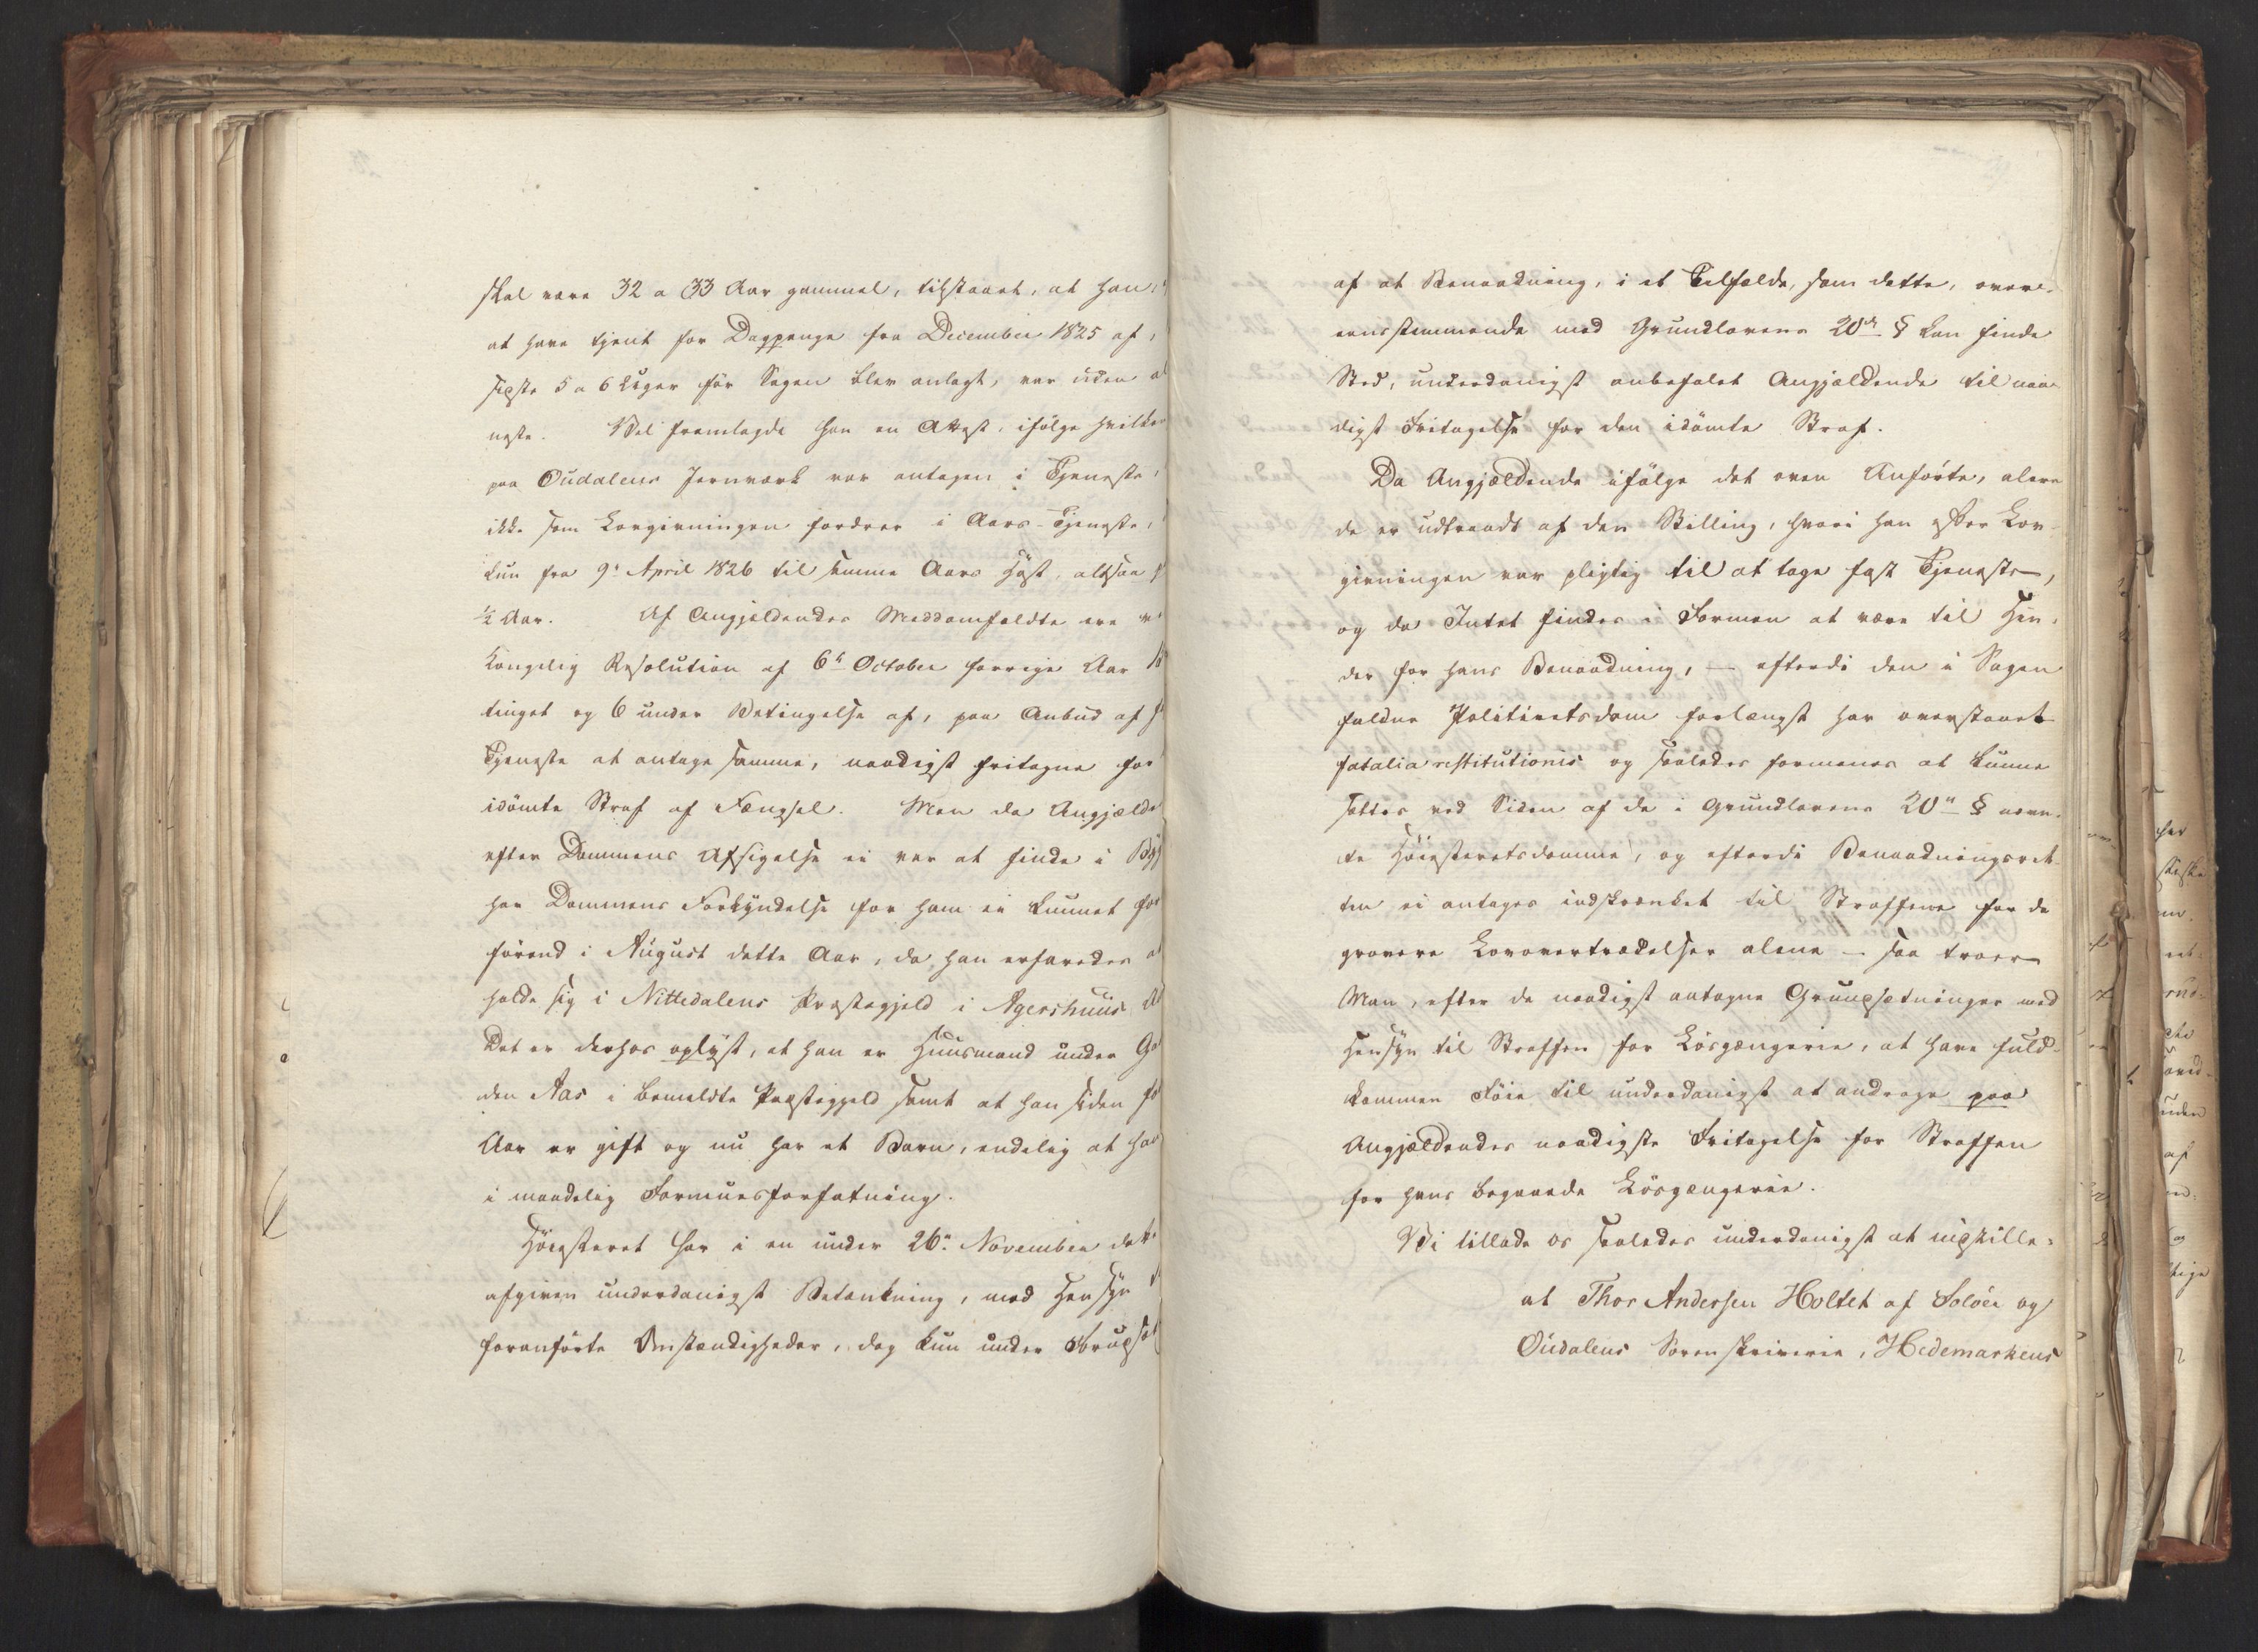 skal være 32 a 33 Aar gammel, tilstaaet, at han,
at have tjent for Dagpenge fra December 1825 af,
sidste 5 a 6 Uger før Sagen blev anlagt, var uden
neste. Vel fremlagde han en Attest, ifølge hvilken
paa Oudalens Jernværk var antagen i Tjeneste,
ikke som Lovgivningen fordrer i Aars-Tjeneste,
kun fra 9de April 1826 til samme Aars Høst, altsaa
½ Aar. Af Angjældendes Meddomfældte ere
Kongelig Resolution af 6te October forrige Aar
tinget og 6 under Betingelse af, paa Anbud af
Tjeneste at antage samme, naadigst fritagne for
idømte Straf af Fængsel. Men da Angjælde
efter Dommens Afsigelse ei var at finde i Byg
har Dommens Forkyndelse for ham ei kunnet
førend i August dette Aar, da han erfaredes
holde sig i Nittedalens Præstegjeld i Agershuus
Det er derhos oplyst, at han er Huusmand under Ga
den Aas i bemeldte Præstegjeld samt at han siden
Aar er gift og nu har et Barn, endelig at han
i maadelig Formuesforfatning.
Høiesteret har i en under 26de November
afgiven underdanigst Betænkning, med Hensyn
foranførte Omstændigheder, dog kun under Forudsæt
af at Benaadning, i et Tilfælde, som dette, overe-
eensstemmende med Grundlovens 20de § kan finde
Sted, underdanigst anbefalet Angjældende til naa-
digst Fritagelse for den idømte Straf.
Da Angjældende ifølge det oven Anførte, alere
de er udtraadt af den Stilling, hvori han efter Lov-
givningen var pligtig til at tage fast Tjeneste,
og da Intet findes i Formen at være til Hin-
der for hans Benaadning, — efterdi den i Sagen
faldne Politieretsdom forlængst har overstaaet
fatalia restitutionis og saaledes formenes at kunne
sættes ved Siden af de i Grundlovens 20de § nævn-
te Høiesteretsdomme, og efterdi Benaadningsret-
ten ei antages indskrænket til Straffene for de
grovere Lovovertrædelser alene – saa troer
Man, efter de naadigst antagne Grundsætninger med
Hensyn til Straffen for Løsgængerie, at have fuld-
kommen Føie til underdanigst at andrage paa
Angjældendes naadigste Fritagelse for Straffen
for hans begaaede Løsgængerie.
Vi tillade os saaledes underdanigst at indstille:
at Thor Andersen Holtet af Soløer og
Oudalens Sorenskriverie, Hedemarkens